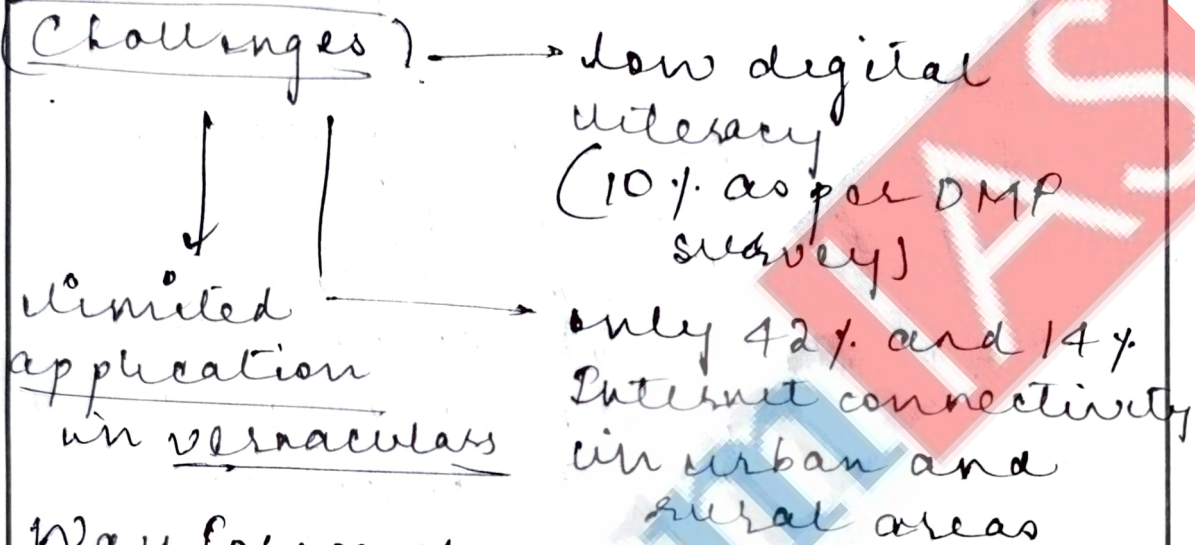 (Challenges)
Low digital
literacy
(10% as per DMP
survey)
limited
application
in vernaculars
only 42% and 14%
Internet connectivity
in urban and
rural areas
Way
IAS